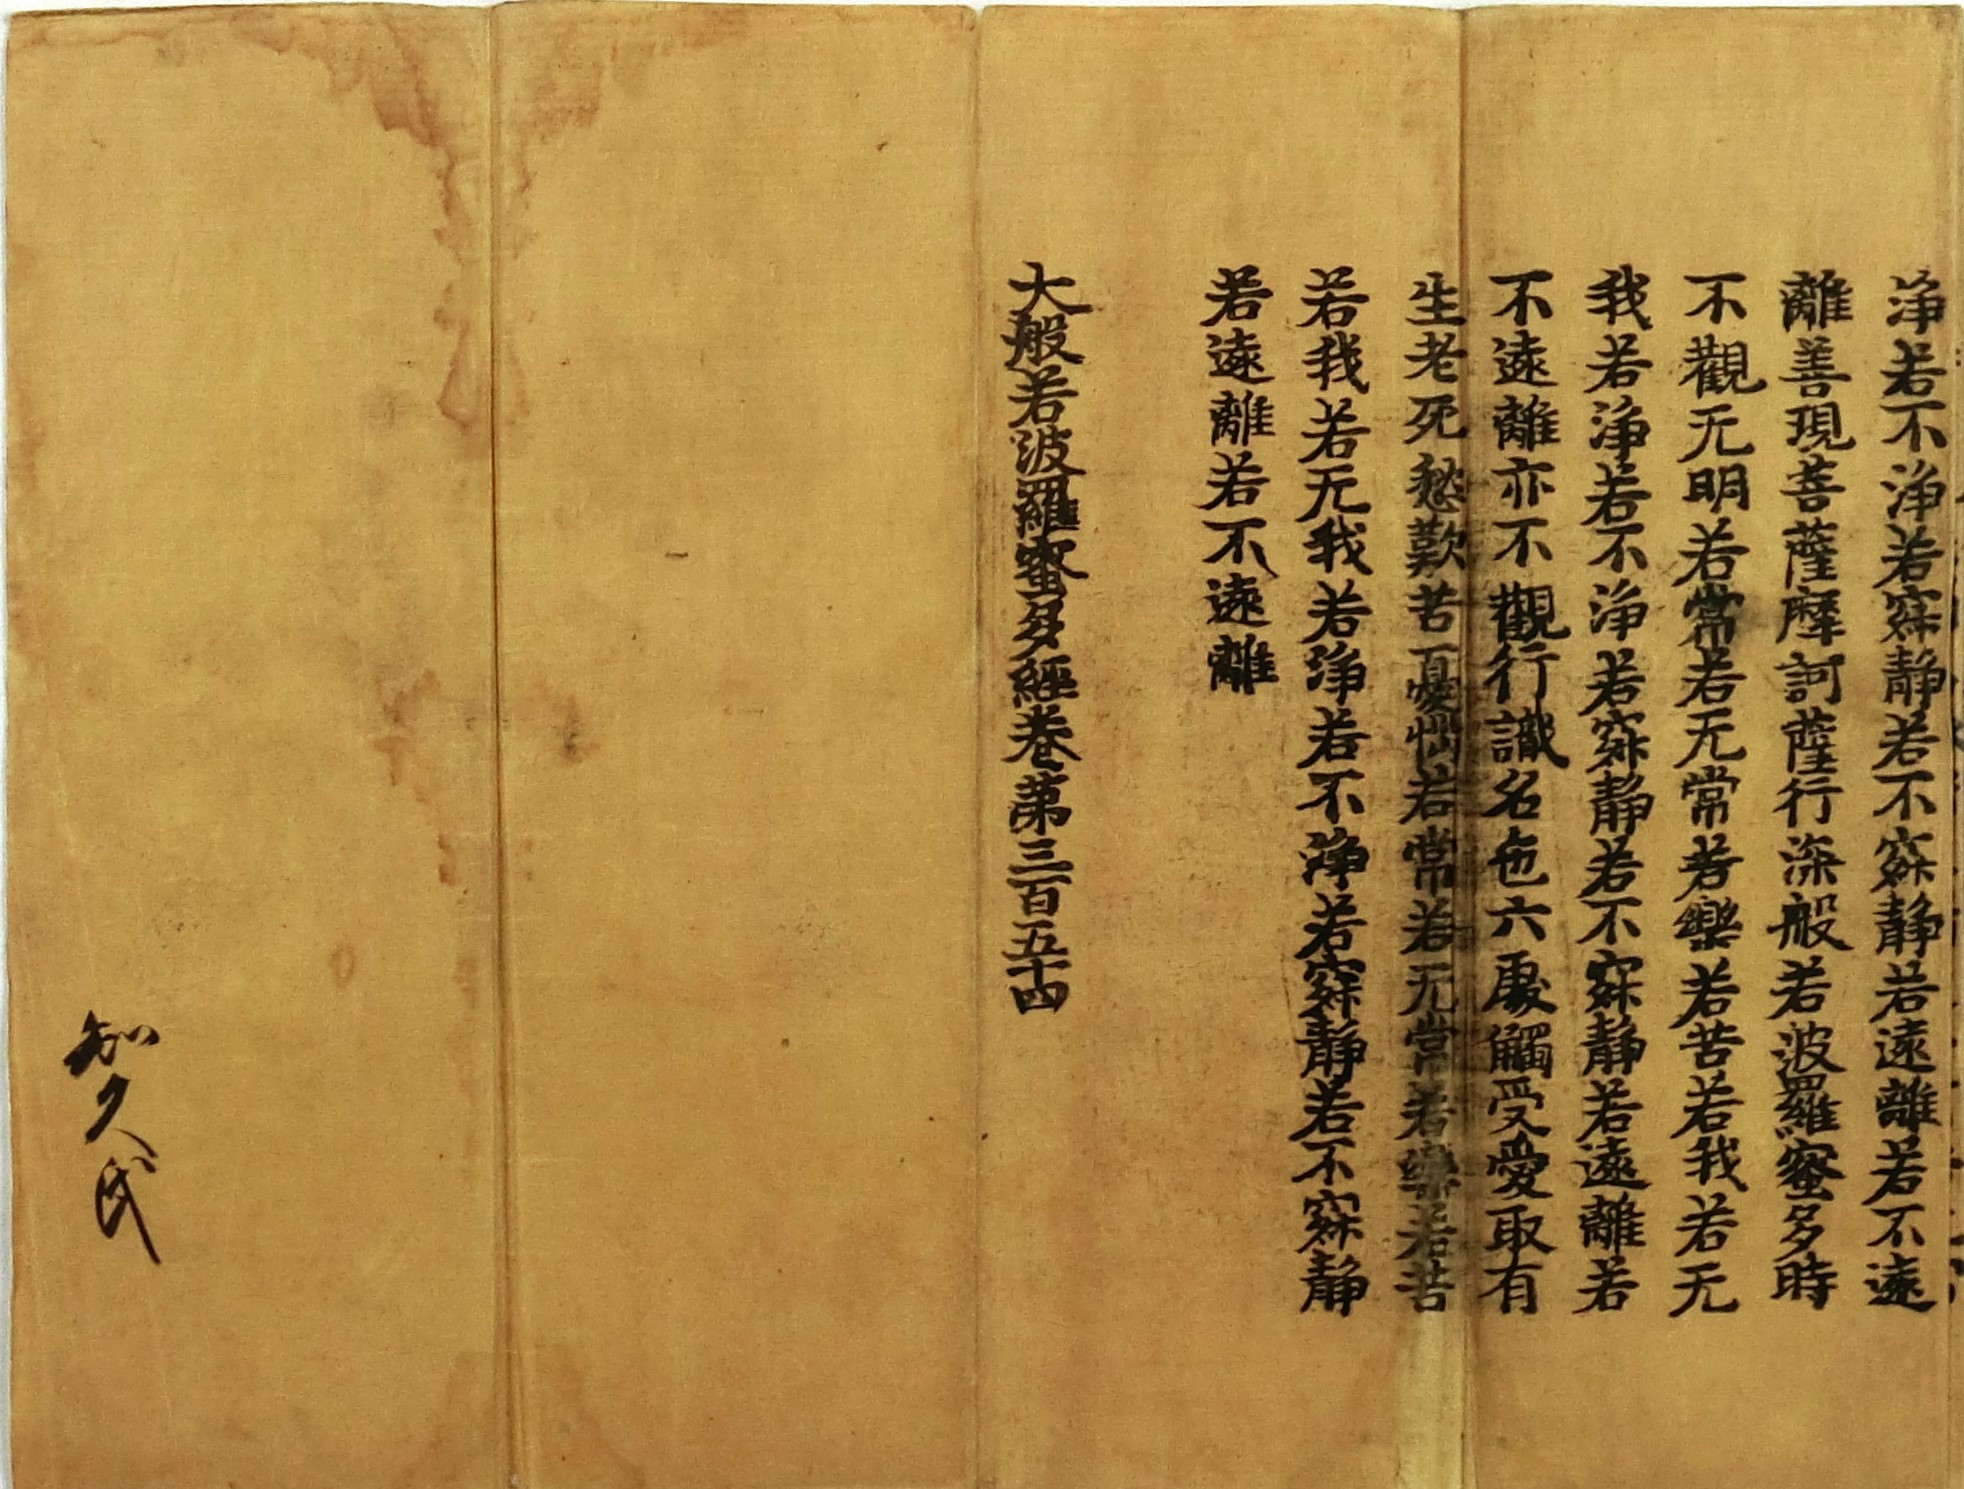 淨若不淨若寂靜若不寂靜若遠離若不遠
離善現菩薩摩訶薩行深般若波羅蜜多時
不觀无明若常若无常若樂若苦若我若无
我若淨若不淨若寂靜若不寂靜若遠離若
不遠離亦不觀行識名色六處觸受愛取有
生老死愁歎苦憂惱若常若无常若樂若苦
若我若无我若淨若不淨若寂靜若不寂靜
若遠離若不遠離
大般若波羅蜜多經卷第三百五十四
知久氏